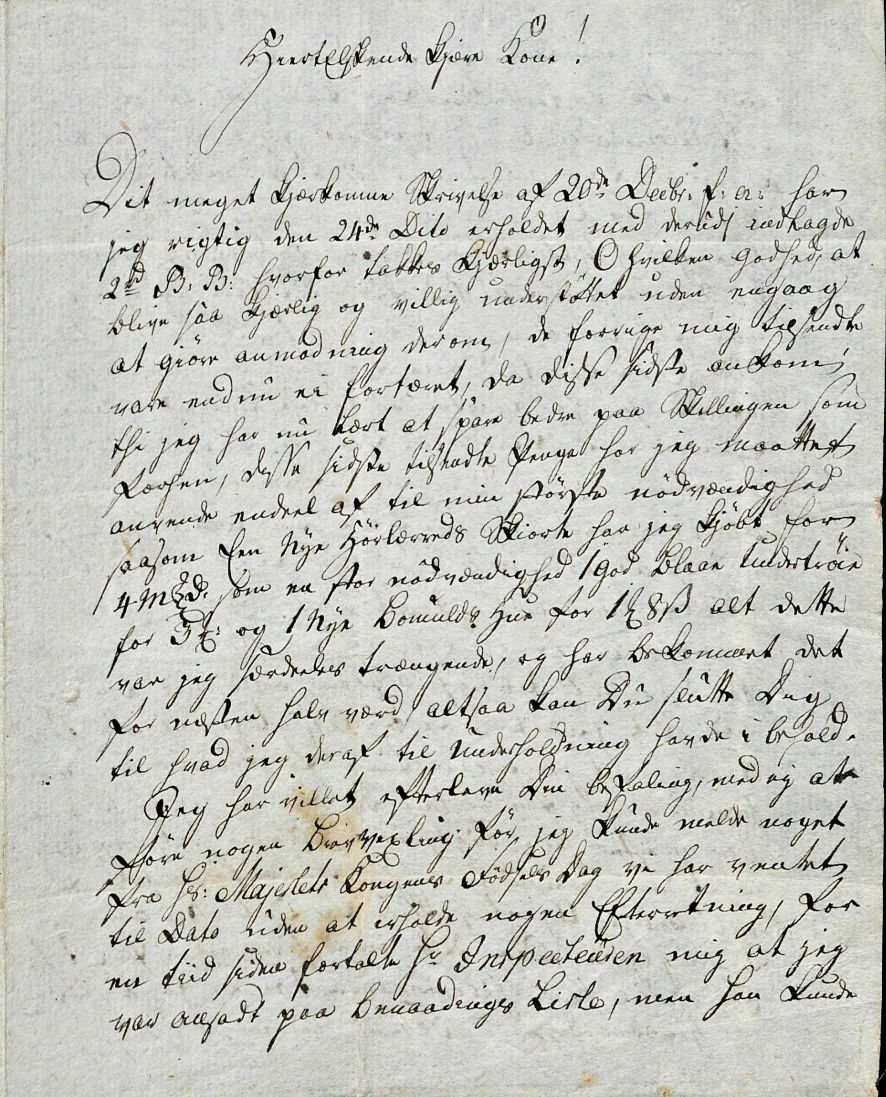 Hiertelskende kjære Kone!
Dit meget kjærkomne Skrivelse af 20de Decbr: f: a: har
jeg rigtig den 24de Dito erholdet med derudj indlagde
2rd B: B: hvorfor takkes kjærligst, O hvilken Godhed, at
blive saa kjærlig og villig understöttet uden engang
at giöre anmodning derom, de forrige mig tilsendte
vare endnu ei fortæret, da disse sidste ankom,
thi jeg har nu lært at spare bedre paa Skillingen som
forhen, disse sidste tilsendte Penge har jeg maattet
anvende endeel af til min störste nödvændighed
saasom Een Nye Hörlærreds Skiorte har jeg kjöbt for
4 som en stor nödvændighed 1 god blaae Undertröie
for 3 og 1 Nye Bomulds Hue for 1 8ß alt dette
var jeg særdeeles trængende, og har bekommet det
for næsten halv værd, altsaa kan Du slutte Dig
til hvad jeg deraf til Underholdning havde i behold.
Jeg har villet efterleve Din befaling, med ej at
före nogen Brevvexling för jeg kunde melde noget
fra Hs: Majestets Kongens Födsels Dag vi har ventet
til Dato uden at erholde nogen Efterretning, for
en tiid siden fortalte Hr Inspecteuren mig at jeg
var ansadt paa Benaadings Liste, men han kunde